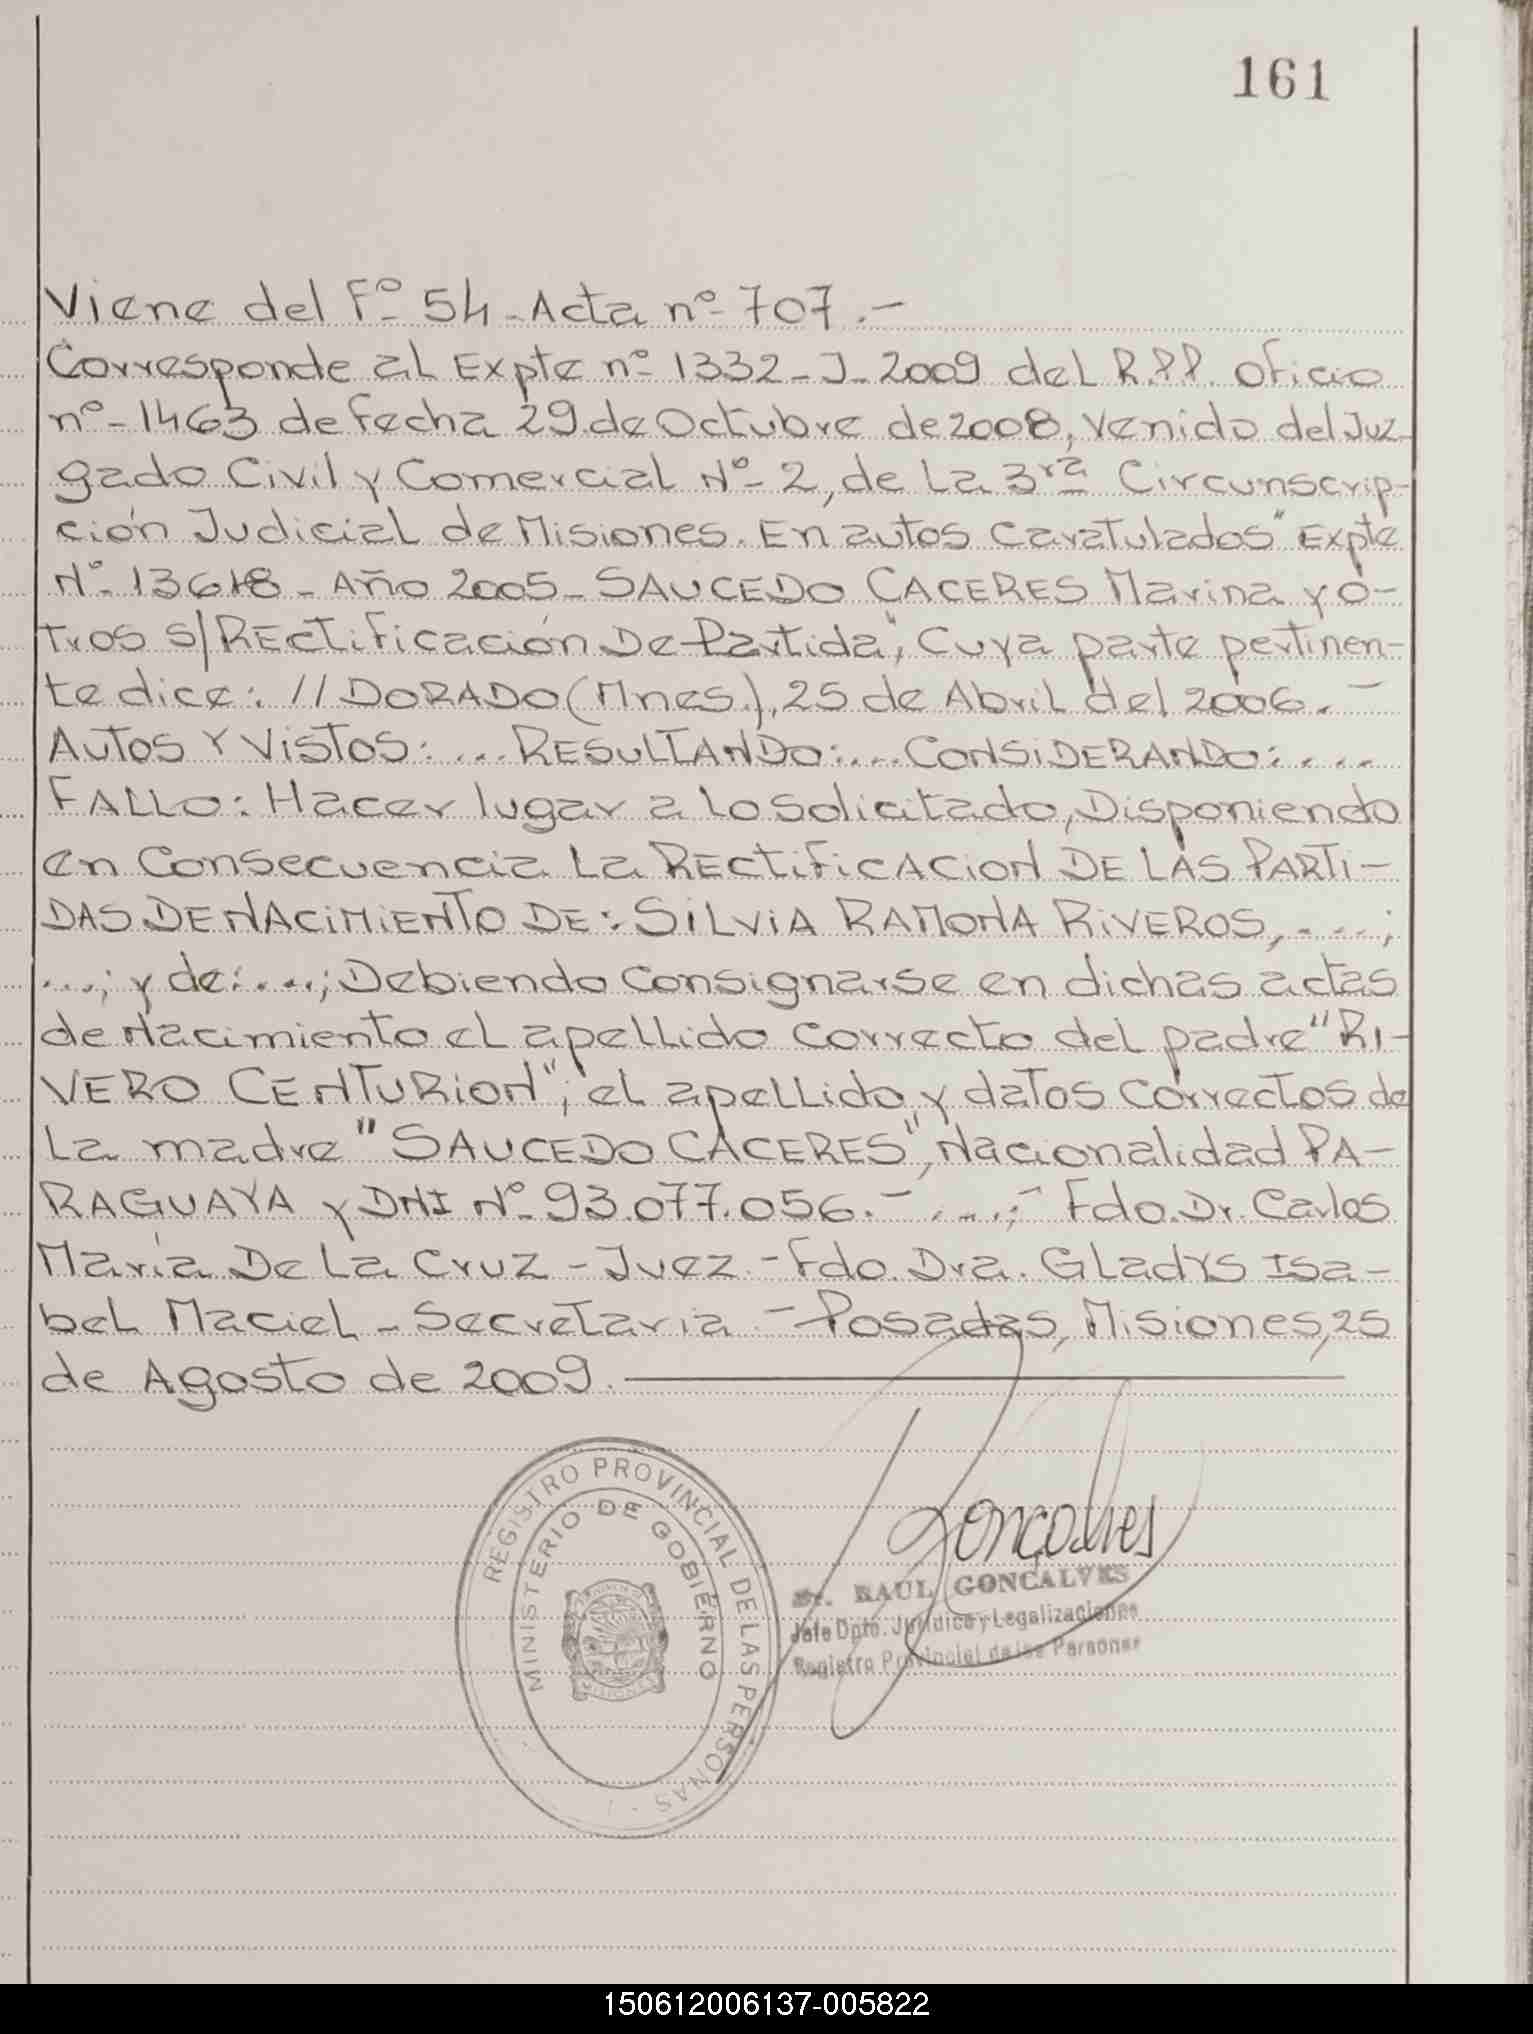 161
Viene del Fº 54 - Acta nº 707.-
Corresponde al Expte nº 1332-J-2009 del R.P.P. Oficio
nº-1463 de fecha 29 de Octubre de 2008, venido del Juz-
gado Civil y Comercial Nº-2, de La 3ra Circunscrip-
ción Judicial de Misiones. En autos Caratulados "Expte
Nº-13618-Año 2005-SAUCEDO CACERES Marina y o-
tros s/RECtificación De Partida", Cuya parte pertinen-
te dice: //DORADO (Mnes.), 25 de Abril del 2006.-
AUTOS Y VISTOS:... RESULTANDO:.... CONSIDERANDO:....
FALLO: Hacer lugar a lo solicitado, Disponiendo
en Consecuencia La RECtifiCACION DE LAS PARTI-
DAS DE NACIMIENTO DE: SILVIA RAMONA RIVEROS, ....;
...; y de:....; Debiendo Consignarse en dichas actas
de Nacimiento el apellido Correcto del padre "RI-
VERO CENTURION"; el apellido y datos Correctos de
La madre "SAUCEDO CACERES", Nacionalidad PA-
RAGUAYA y DNI Nº-93.077.056.- ....;- Fdo. Dr. Carlos
María De La Cruz - Juez.- Fdo. Dra. GLadys Isa-
bel Maciel - Secretaria.- Posadas, Misiones, 25
de Agosto de 2009.
REGISTRO PROVINCIAL DE LAS PERSONAS
MINISTERIO DE GOBIERNO
MISIONES
Gonçalves
Dr. RAUL GONCALVES
Jefe Dpto. Jurídico y Legalizaciones
Registro Provincial de las Personas
150612006137-005822